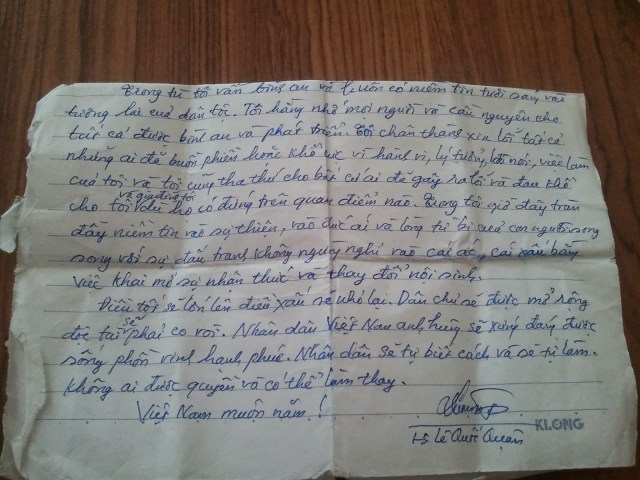 Trong tù tôi vẫn bình an và luôn có niềm tin tươi sáng vào
tương lai của dân tộc. Tôi hằng nhớ mọi người và cầu nguyện cho
tất cả được bình an và phát triển. Tôi chân thành xin lỗi tất cả
những ai đã buồn phiền hoặc khổ cực vì hành vi, lý tưởng, lời nói, việc làm
của tôi và tôi cũng tha thứ cho bất cứ ai đã gây ra lỗi và đau khổ
và gia đình tôi
cho tôi dù họ có đứng trên quan điểm nào. Trong tôi giờ đây tràn
đầy niềm tin vào sự thiện, vào đức ái và lòng từ bi của con người song
song với sự đấu tranh không ngưng nghỉ vào cái ác, cái xấu bằng
việc khai mở sự nhận thức và thay đổi nội sinh.
Điều tốt sẽ lớn lên điều xấu sẽ nhỏ lại. Dân chủ sẽ được mở rộng
sẽ
độc tài phải co rồi. Nhân dân Việt Nam anh hùng sẽ xứng đáng được
sống phồn vinh hạnh phúc. Nhân dân sẽ tự biết cách và sẽ tự làm.
Không ai được quyền và có thể làm thay.
Việt Nam muôn năm!
KLONG
Ls Lê Quốc Quân